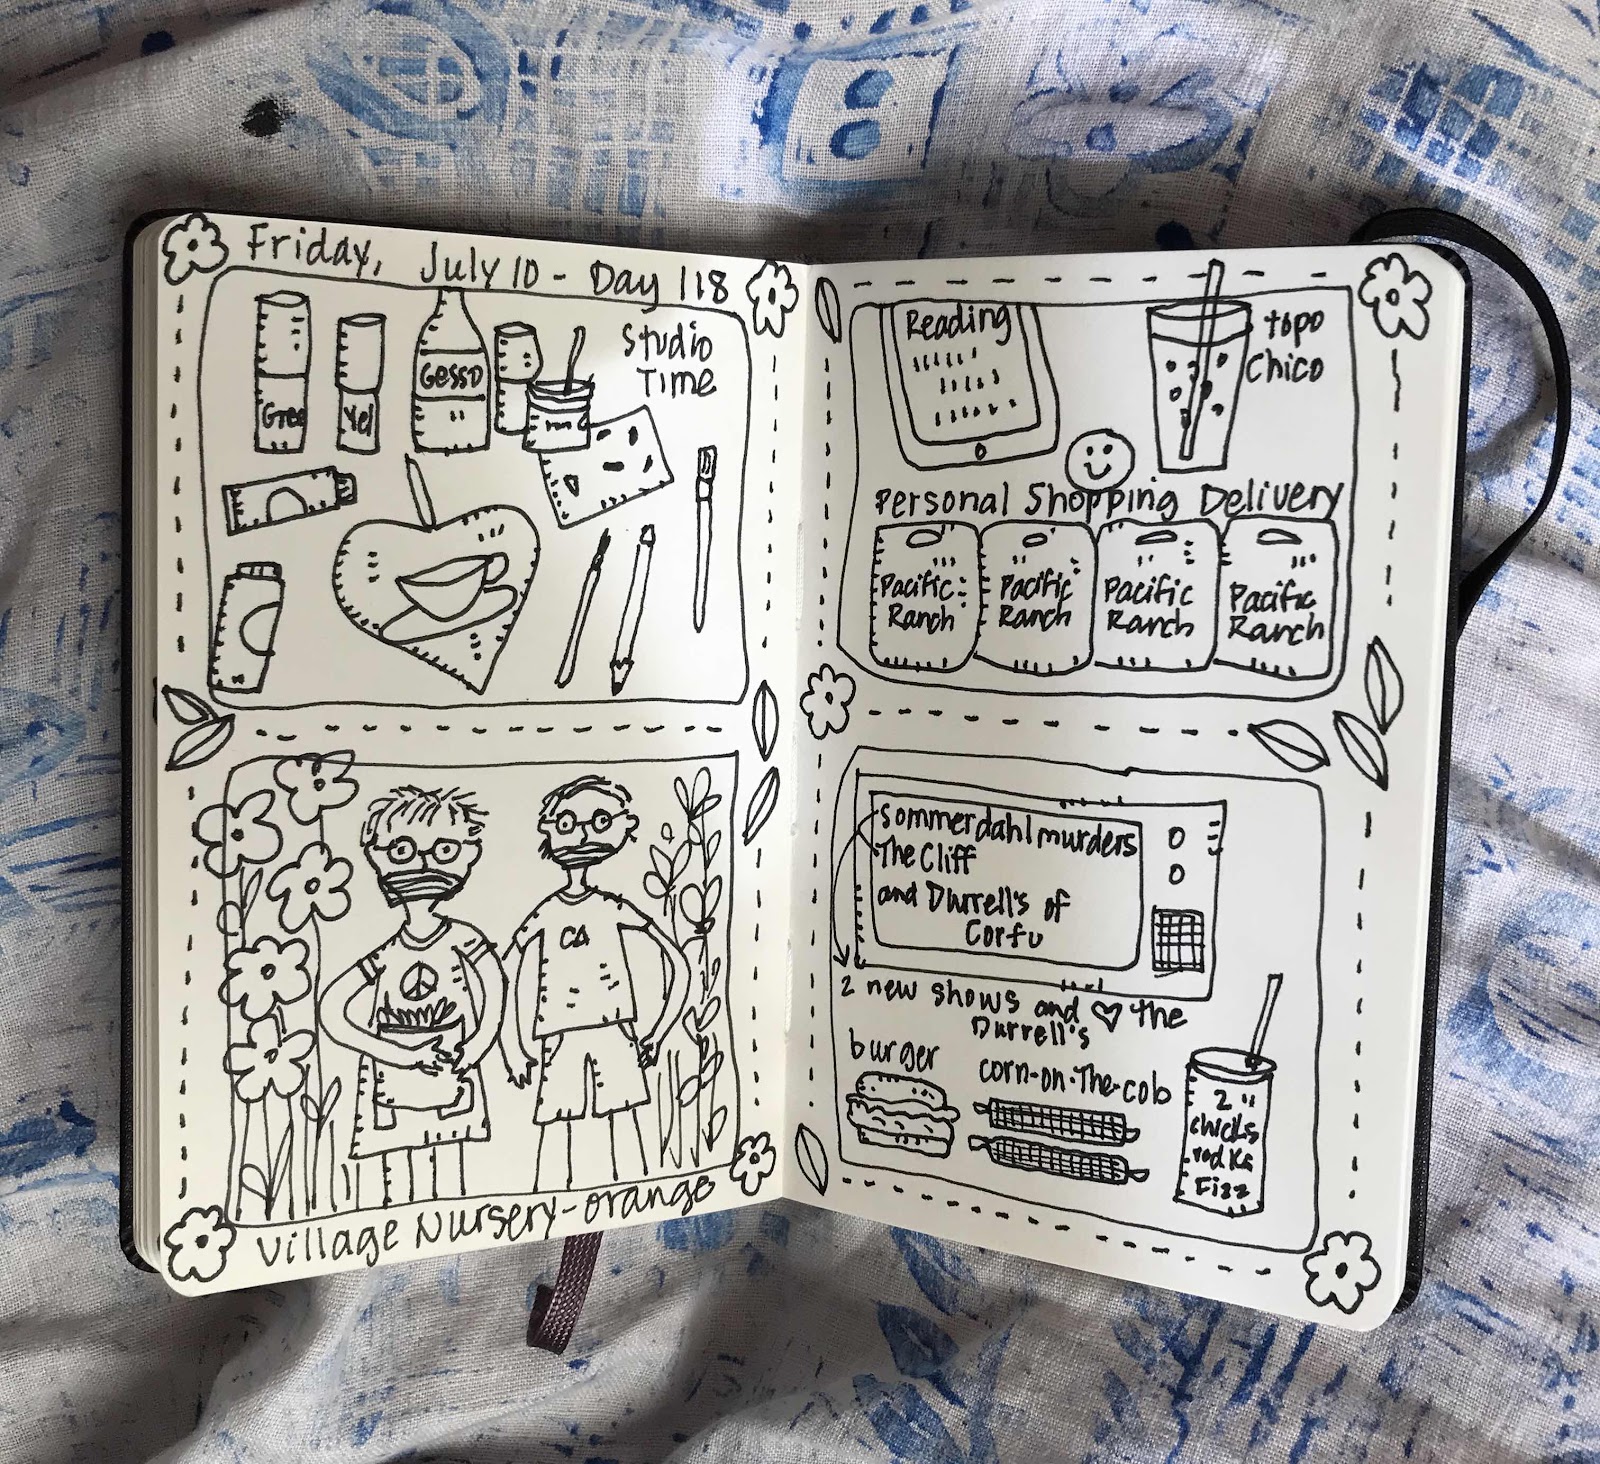 Friday, July 10 - Day 118
Studio
Time
Gesso
Gree
Yel
Village Nursery-orange
Reading
topo
Chico
Personal Shopping Delivery
Pacific
Ranch
Pacific
Ranch
Pacific
Ranch
Pacific
Ranch
Sommerdahl murders
The Cliff
and Durrell's of
Corfu
2 new shows and ♡ the
Durrell's
burger
corn-on-the-cob
2
chicks
vodka
Fizz
CA